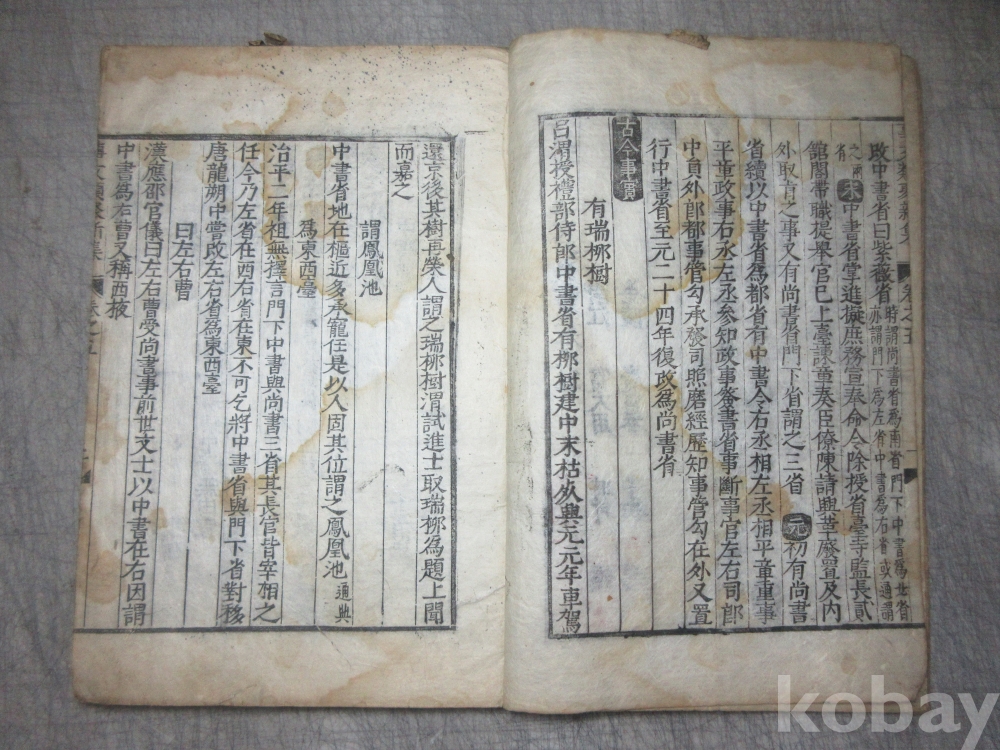 改中書省曰紫薇省時謂尚書省為南省門下中書為北省亦謂門下為左省中書為右省或通謂
之兩省宋中書省掌進擬庶務宣奉命令除授省臺寺監長貳
館閣帶職提舉官已上臺諫章奏臣僚陳請興革廢置及內
外取旨之事又有尚書省門下省謂之三省元初有尚書
省續以中書省為都省有中書令右丞相左丞相平章重事
平章政事右丞左丞參知政事簽書省事斷事官左右司郎
中員外郎都事管勾承發司照磨經歷知事管勾在外又置
行中書省至元二十四年復改為尚書省
古今事實
有瑞柳樹
呂渭授禮部侍郎中書省有柳樹建中末枯死興元元年車駕
還京後其樹再榮人謂之瑞柳樹渭試進士取瑞柳為題上聞
而嘉之
謂鳳凰池
中書省地在樞近多承寵任是以人固其位謂之鳳凰池通典
為東西臺
治平二年祖無擇言門下中書與尚書三省其長官皆宰相之
任今乃左省在西右省在東不可乞將中書省與門下省對移
唐龍朔中嘗改左右省為東西臺
曰左右曹
漢應邵官儀曰左右曹受尚書事前世文士以中書在右因謂
中書為右曹又稱西掖
kobay